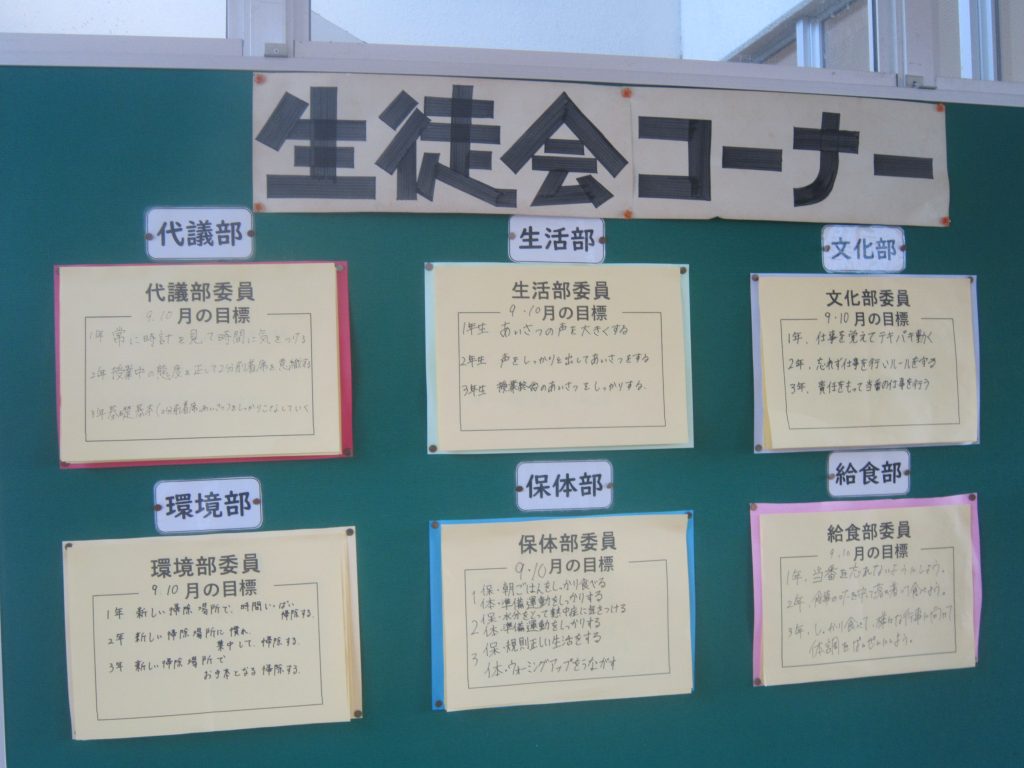 生徒会コーナー
代議部
代議部委員
9.10 月の目標
1年 常に時計を見て時間に気をつける
2年 授業中の態度を正して2分前着席を意識する
3年 基礎基本(2分前着席,あいさつ)をしっかりこなしていく
生活部
生活部委員
9.10 月の目標
1年生 あいさつの声を大きくする
2年生 声をしっかりと出してあいさつをする
3年生 授業始めのあいさつをしっかりする.
文化部
文化部委員
9.10 月の目標
1年、仕事を覚えてテキパキ動く
2年、忘れず仕事を行い をする
3年、責任をもって当番の仕事を行う
環境部
環境部委員
9.10 月の目標
1年 新しい掃除場所で、時間いっぱい
掃除する.
2年 新しい掃除場所に慣れ、
集中して、掃除する.
3年 新しい掃除場所で
お手本となる掃除する.
保体部
保体部委員
9.10 月の目標
1 保・朝ごはんをしっかり食べる
体・準備運動をしっかりする
2 保・水分をとって熱中症に気をつける
体・準備運動をしっかりする
3 保・規則正しい生活をする
体・ウォーミングアップをうながす
給食部
給食部委員
9.10 月の目標
1年、当番を忘れないようにしよう。
2年、食事の 食べよう。
3年、しっかり食べて、様々な行事に向けて
体調を よう。